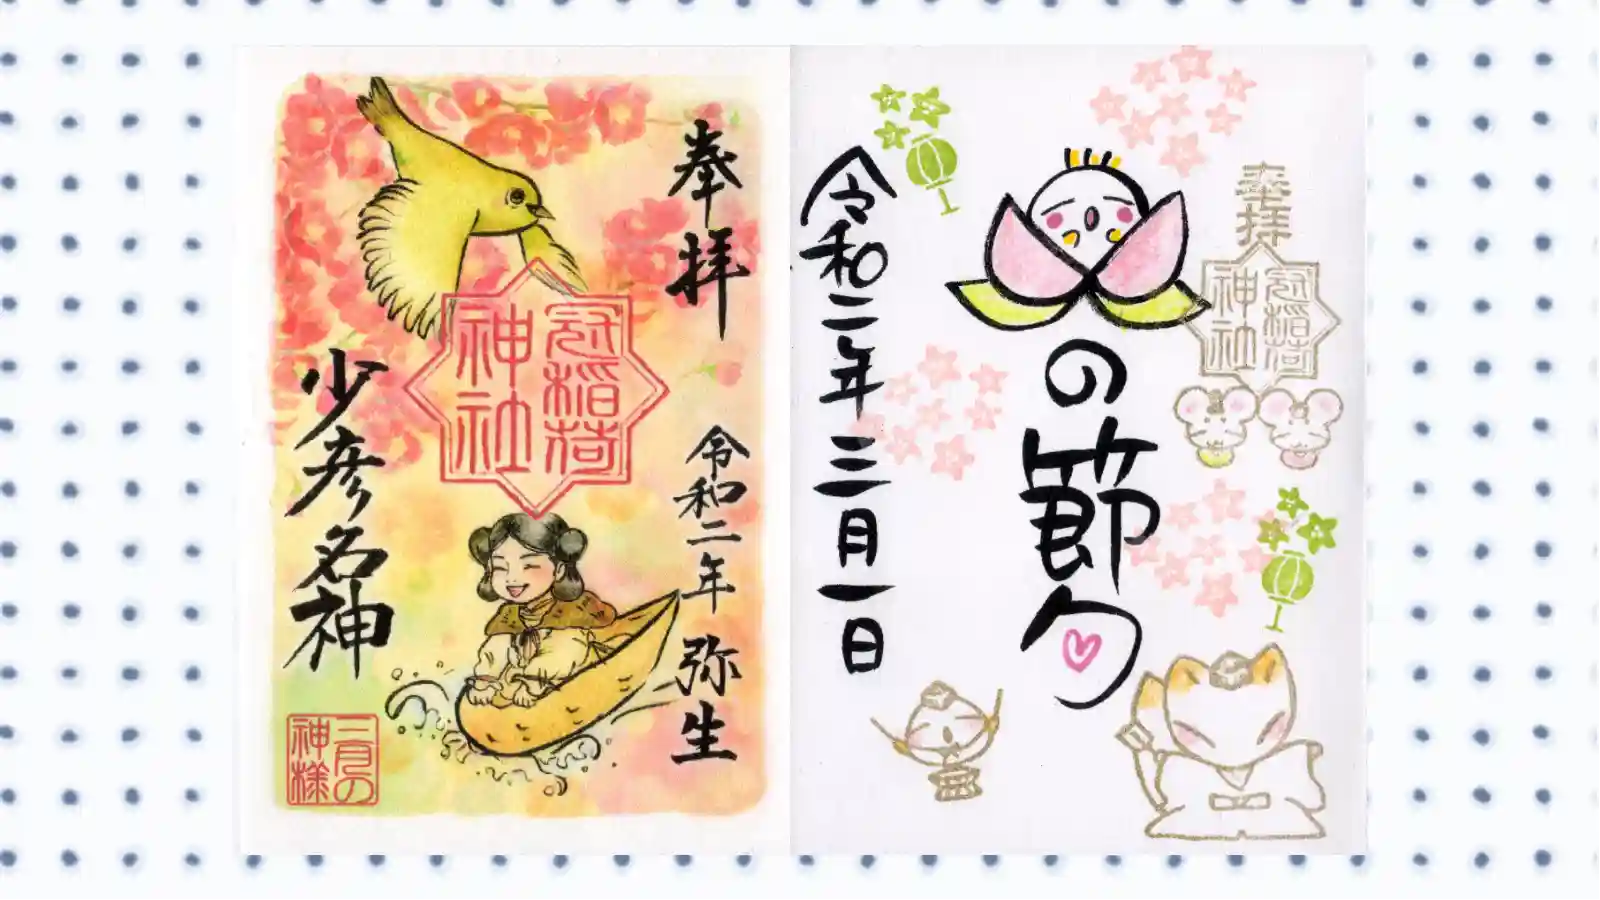 奉拝
冠稲荷
神社
令和二年 弥生
少彦名神
二月の
神様
奉拝
冠稲荷
神社
の節句
令和二年三月一日